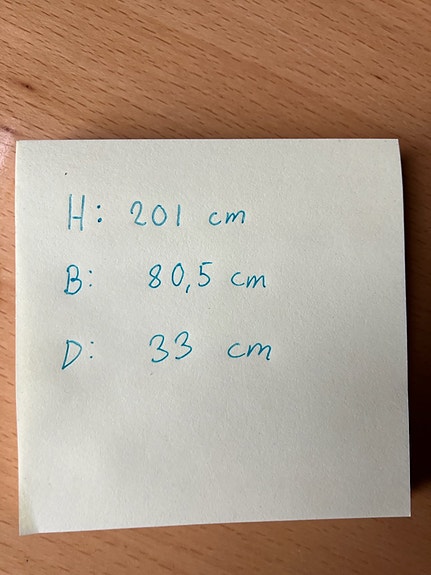 H: 201 cm
B: 80,5 cm
D: 33 cm